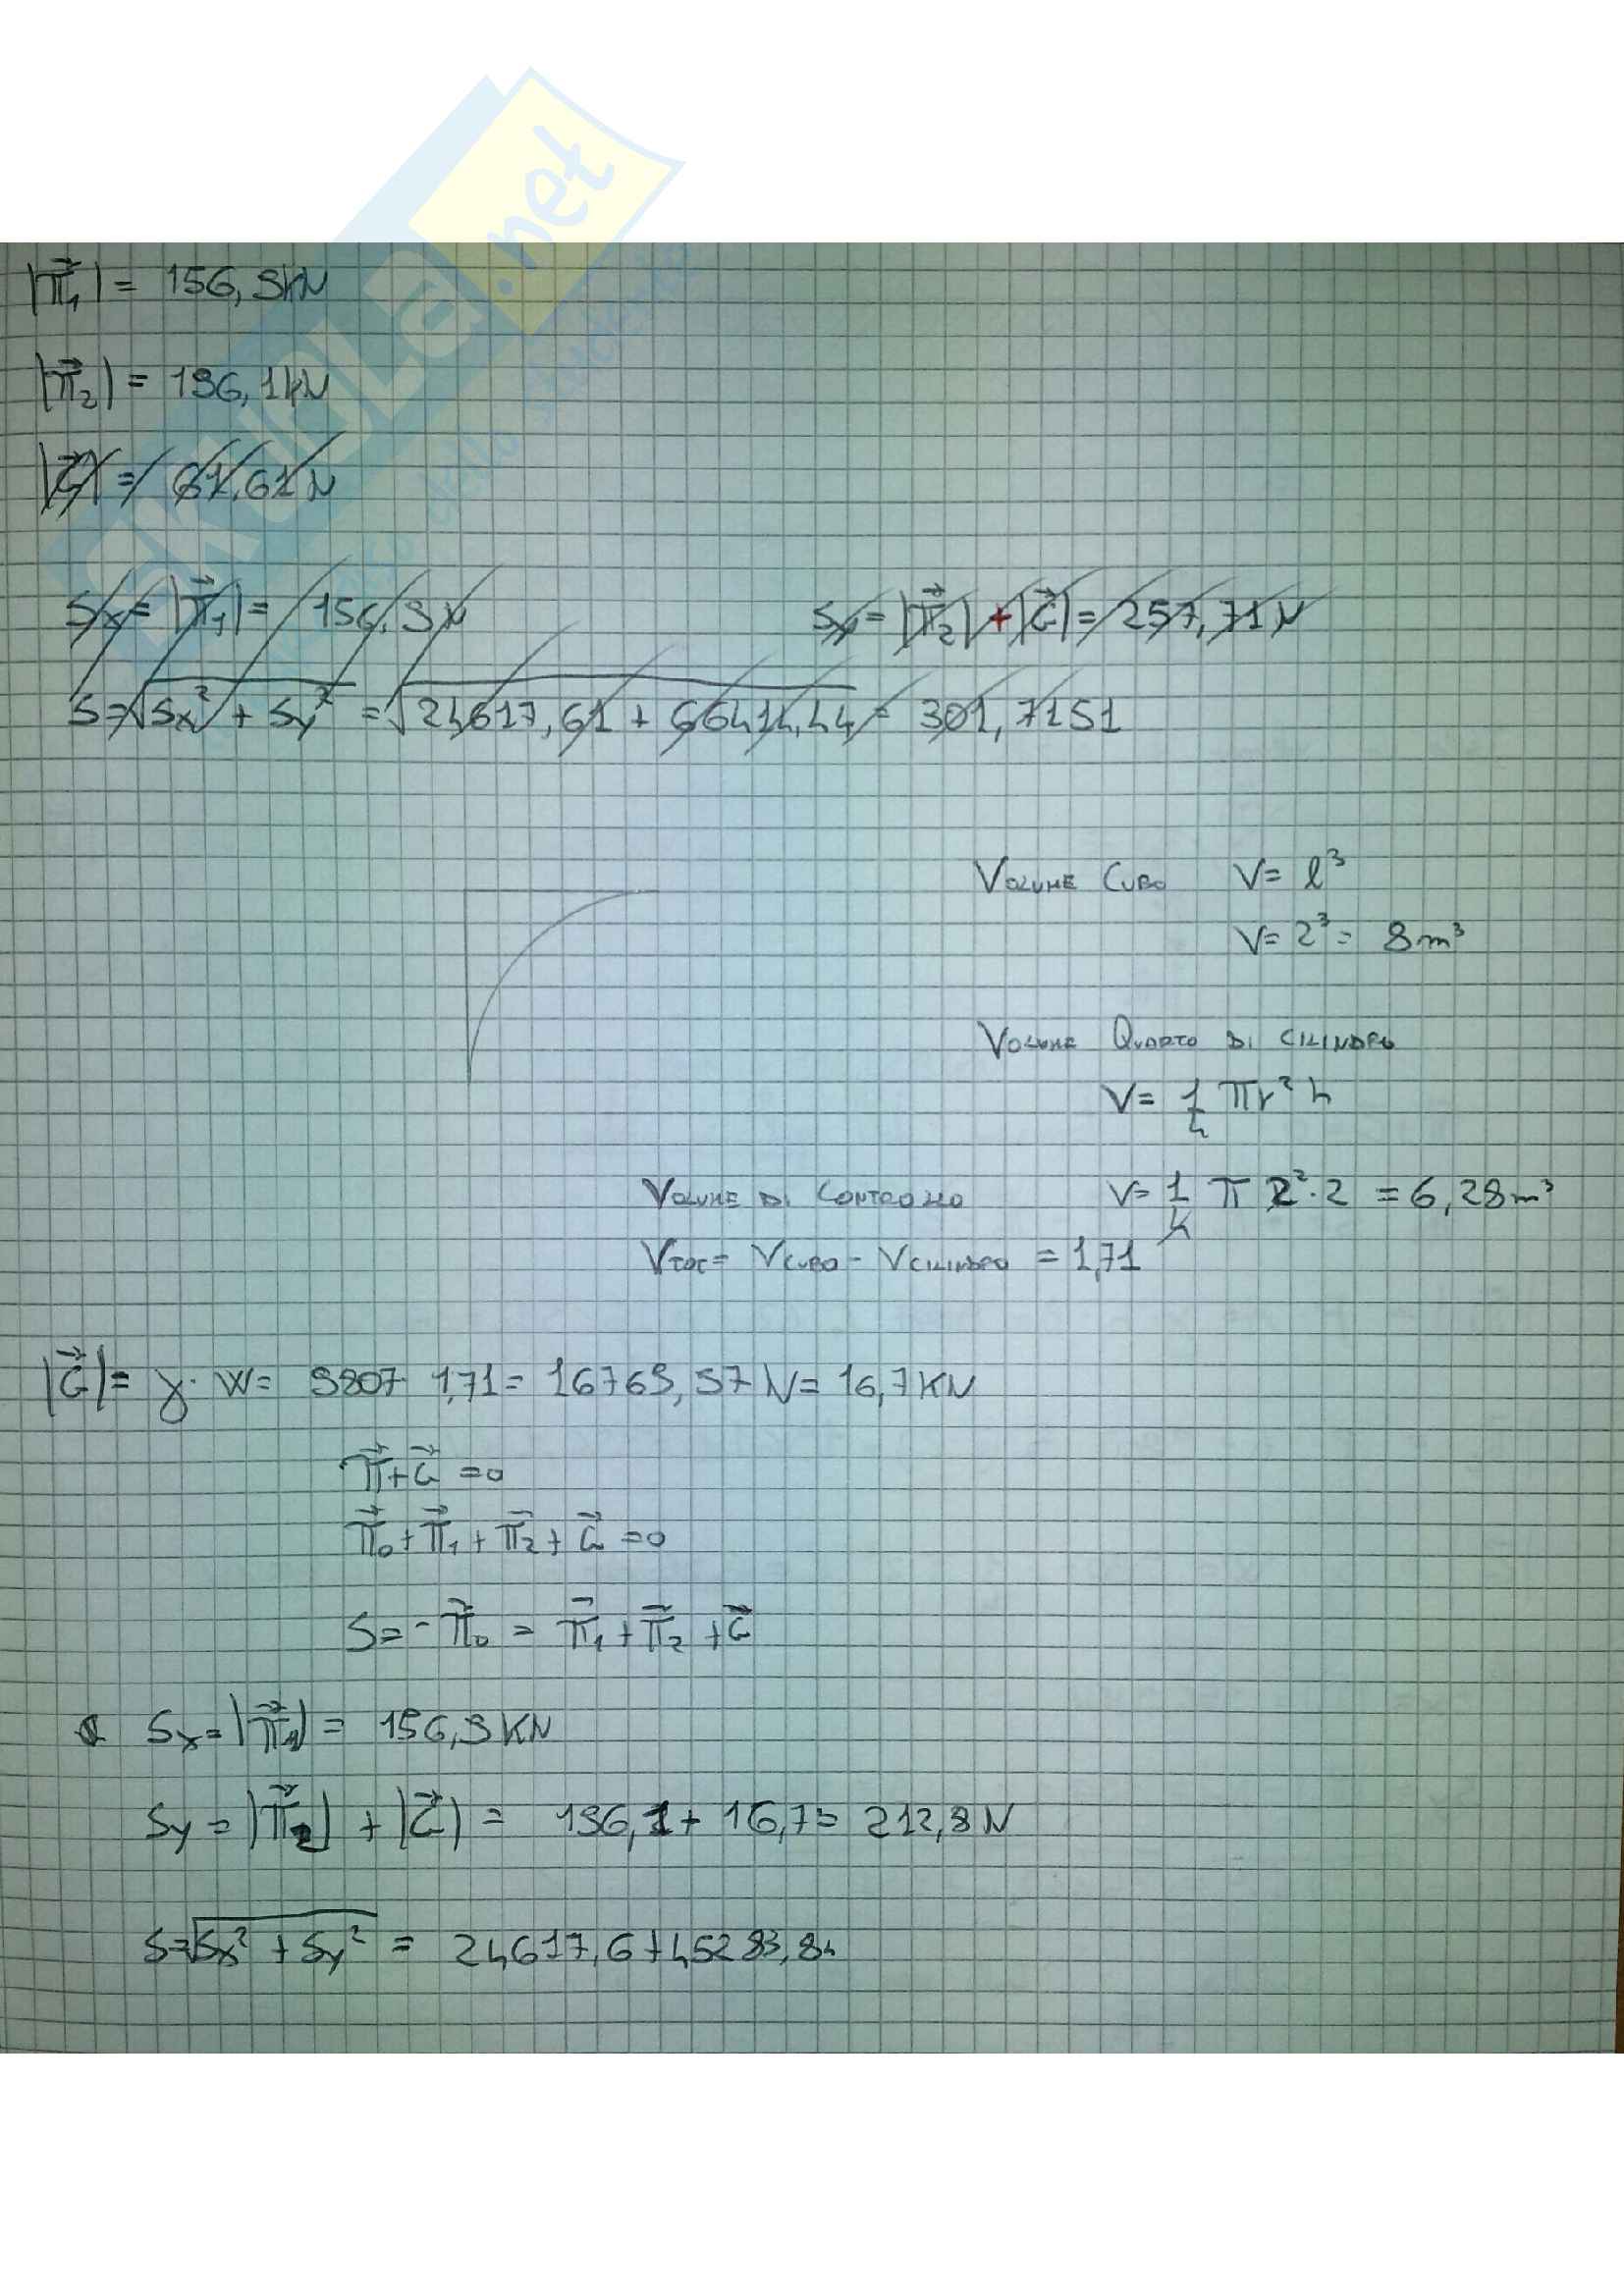 SKUOLA.net
|π⃗₁| = 156,9kN
|π⃗₂| = 196,1kN
|G⃗| = 61,61N
Sx = |π⃗₁| = 156,9N Sy = |π⃗₂| + |G⃗| = 257,71N
S = √Sx² + Sy² = √24617,61 + 66414,44 = 301,7151
VOLUME CUBO V = l³
V = 2³ = 8m³
VOLUME QUARTO DI CILINDRO
V = 1/4 πr²h
VOLUME DI CONTROLLO V = 1/4 π 2²·2 = 6,28m³
VTOT = VCUBO - VCILINDRO = 1,71
|G⃗| = γ·W = 9807·1,71 = 16769,97N = 16,7KN
π⃗+G⃗ = 0
π⃗₀+π⃗₁+π⃗₂+G⃗ = 0
S = -π⃗₀ = π⃗₁+π⃗₂+G⃗
Sx = |π⃗₁| = 156,9KN
Sy = |π⃗₂| + |G⃗| = 196,1 + 16,7 = 212,8N
S = √Sx² + Sy² = 24617,6+45283,84